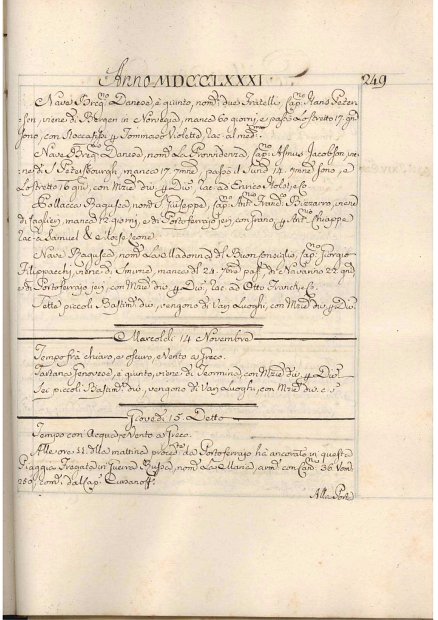 Anno MDCCLXXXI. 249
Nave Brq.no Danese, è giunto, nom.° due Fratelli, Cap.no Hans Peter-
son, viene di Bergen in Norvegia, manca 60 giorni, e passò lo Stretto 17 gni
sono, con Stoccafissi p Tommaso Violetta, rac. al med.mo
Nave Brq.no Danese, nom.° La Providenza, Cap.no Asmus Jacobson, vie-
ne di S. Petersburgh, manca 17. 7mre, passò il Sund 14. 7mre sono, e
lo Stretto 16 gni, con Mrzie div. p Div.i rac. ad Enrico
Pollacca Ragusea, nom. S. Giuseppe, Cap.no Ant.° Franc.° Bizzarro, viene
di Caglieri, manca 12 giorni, e di Portoferrajo jeri, con Grano, p Ant.° Chiappe
rac. a Samuel & e Mosè Leone
Nave Ragusea, nom. La Madonna del Buon Consiglio, Cap.no Giorgio
Filippacchi, viene di Smirne, manca dl 21. 7mre, pass.° di Navarino 22 gni
Portoferrajo jeri, con Mrzie div. p Div.i rac. ad Otto Franck, e C.
Sette piccoli Bastim.ti div. vengono di Varj Luoghi, con Mrzie div. p Div.i
Marcoledì 14 Novembre
Tempo frà chiaro, e oscuro, e Vento a Greco.
Tartana Genovese, è giunto, viene di Termina, con Mrzie div. p Div.i
Sei piccoli Bastim.ti div. vengono di Varj Luoghi, con Mrzie div. e
Giovedì 15. Detto
Tempo con Acqua, e Vento a Greco.
Alle ore 11. della mattina proced.te da Portoferrajo hà ancorato in questa
Piaggia Fregata in Guerra Russa, nom. La Maria, arm. con Can.i 36. Uom.
250, com. dal Cap.
Alla Porta